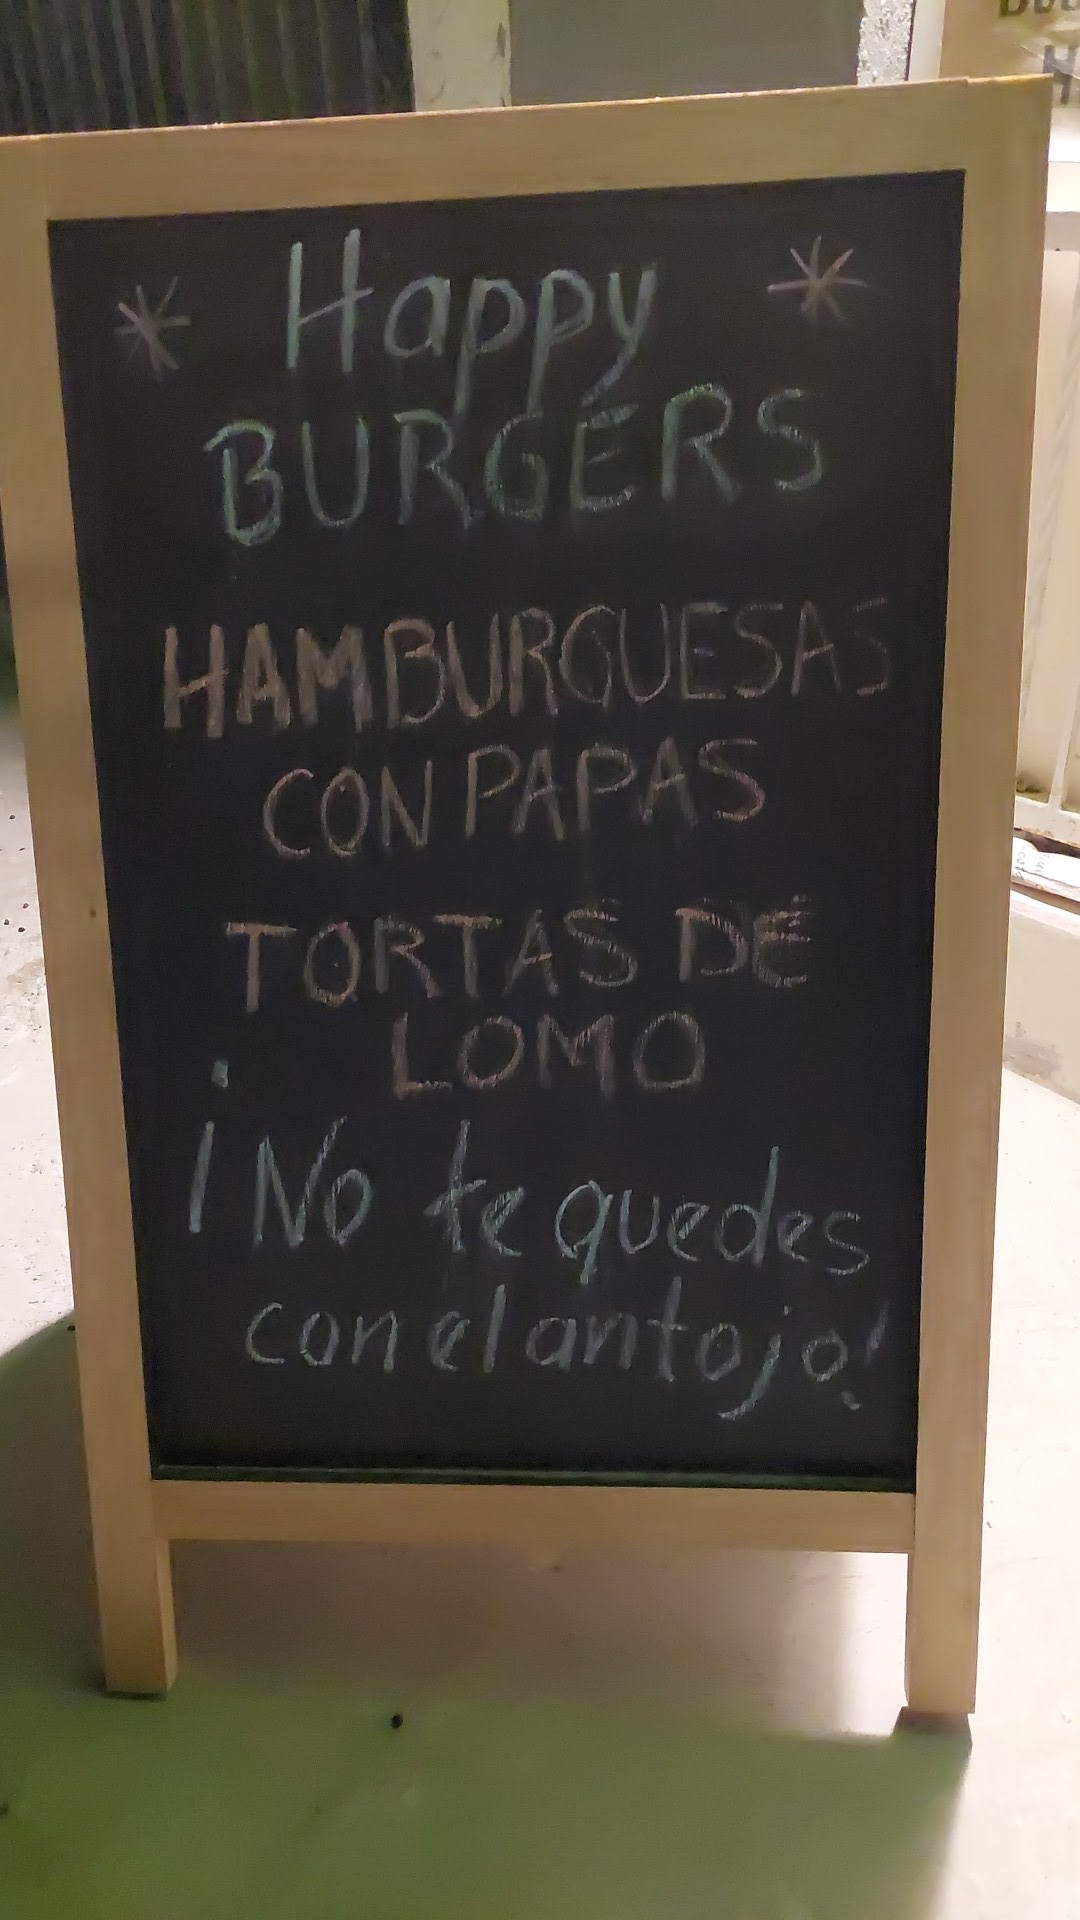 * Happy *
BURGERS
HAMBURGUESAS
CON PAPAS
TORTAS DE
LOMO
¡No te quedes
con el antojo!